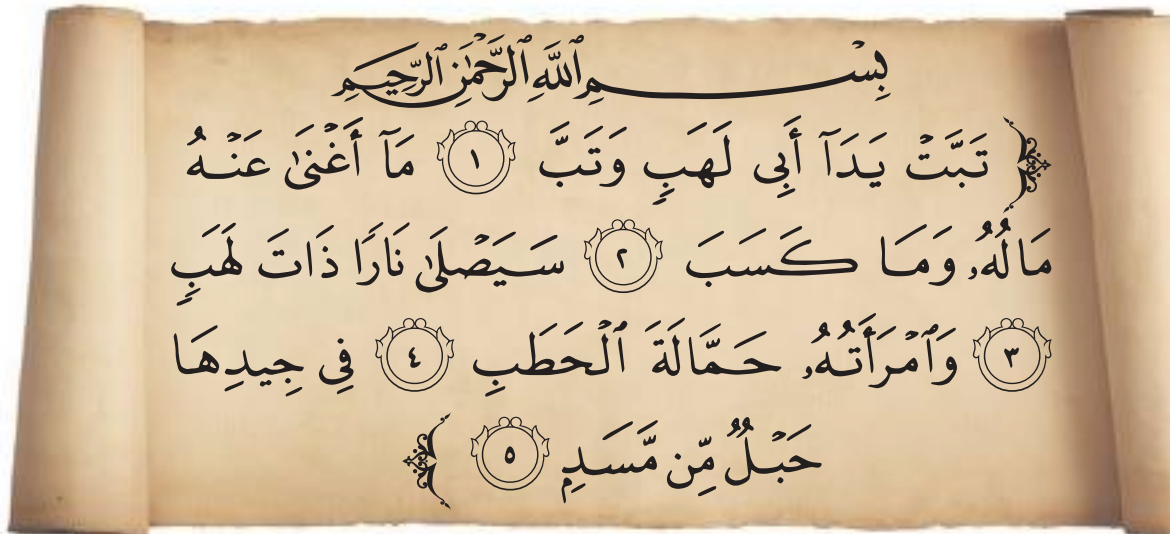 بِسْمِ اللَّهِ الرَّحْمَٰنِ الرَّحِيمِ
﴿ تَبَّتْ يَدَآ أَبِى لَهَبٍ وَتَبَّ ١ مَآ أَغْنَىٰ عَنْهُ
مَالُهُۥ وَمَا كَسَبَ ٢ سَيَصْلَىٰ نَارًا ذَاتَ لَهَبٍ
٣ وَٱمْرَأَتُهُۥ حَمَّالَةَ ٱلْحَطَبِ ٤ فِى جِيدِهَا
حَبْلٌ مِّن مَّسَدٍۭ ٥ ﴾